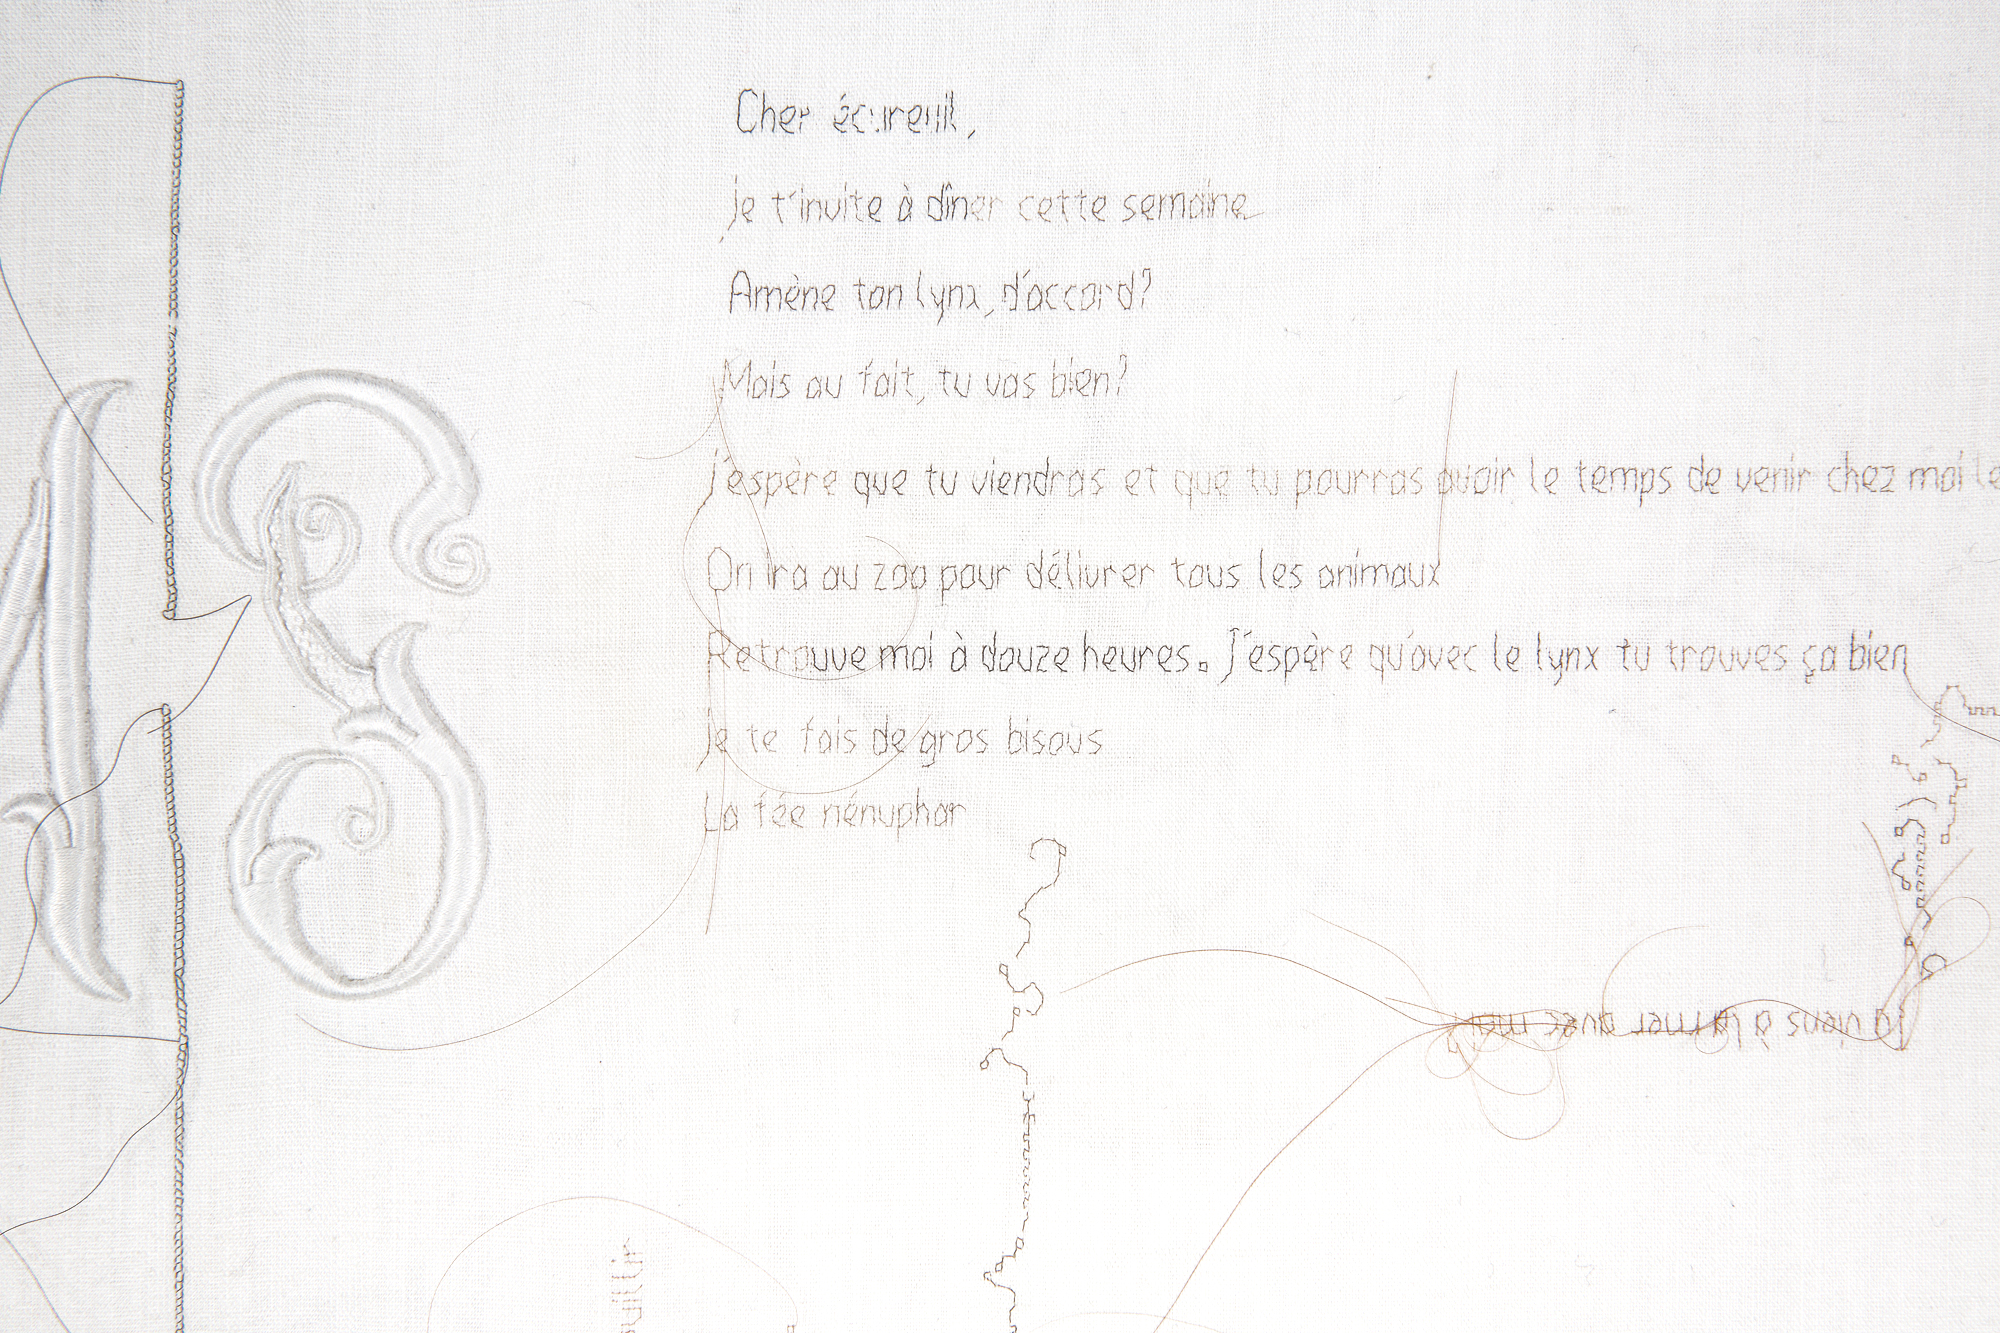 Cher écureuil,
je t'invite à dîner cette semaine
Amène ton lynx, d'accord?
Mais au fait, tu vas bien?
J'espère que tu viendras et que tu pourras avoir le temps de venir chez moi le
On ira au zoo pour délivrer tous les animaux
Retrouve moi à douze heures. J'espère qu'avec le lynx tu trouves ça bien
je te fais de gros bisous
La fée nénuphar